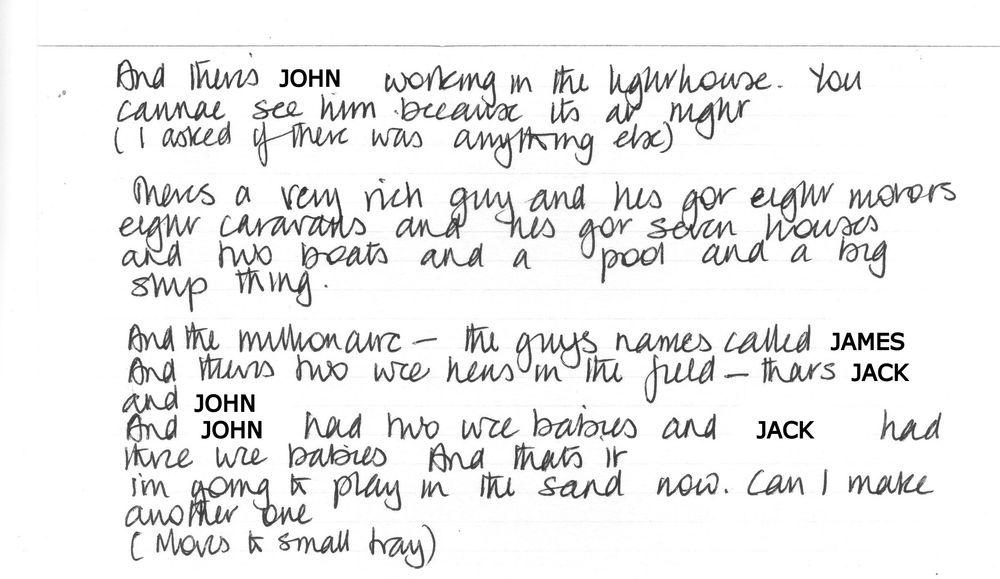 And theres JOHN working in the lighthouse. You
cannae see him because its at night
(I asked if there was anything else)
Theres a very rich guy and hes got eight motors
eight caravans and hes got seven houses
and two boats and a pool and a big
ship thing.
And the millionaire – the guys names called JAMES
And theres two wee hens in the field – thats JACK
and JOHN
And JOHN had two wee babies and JACK had
three wee babies And thats it
im going to play in the sand now. Can I make
another one
(Moves to small tray)